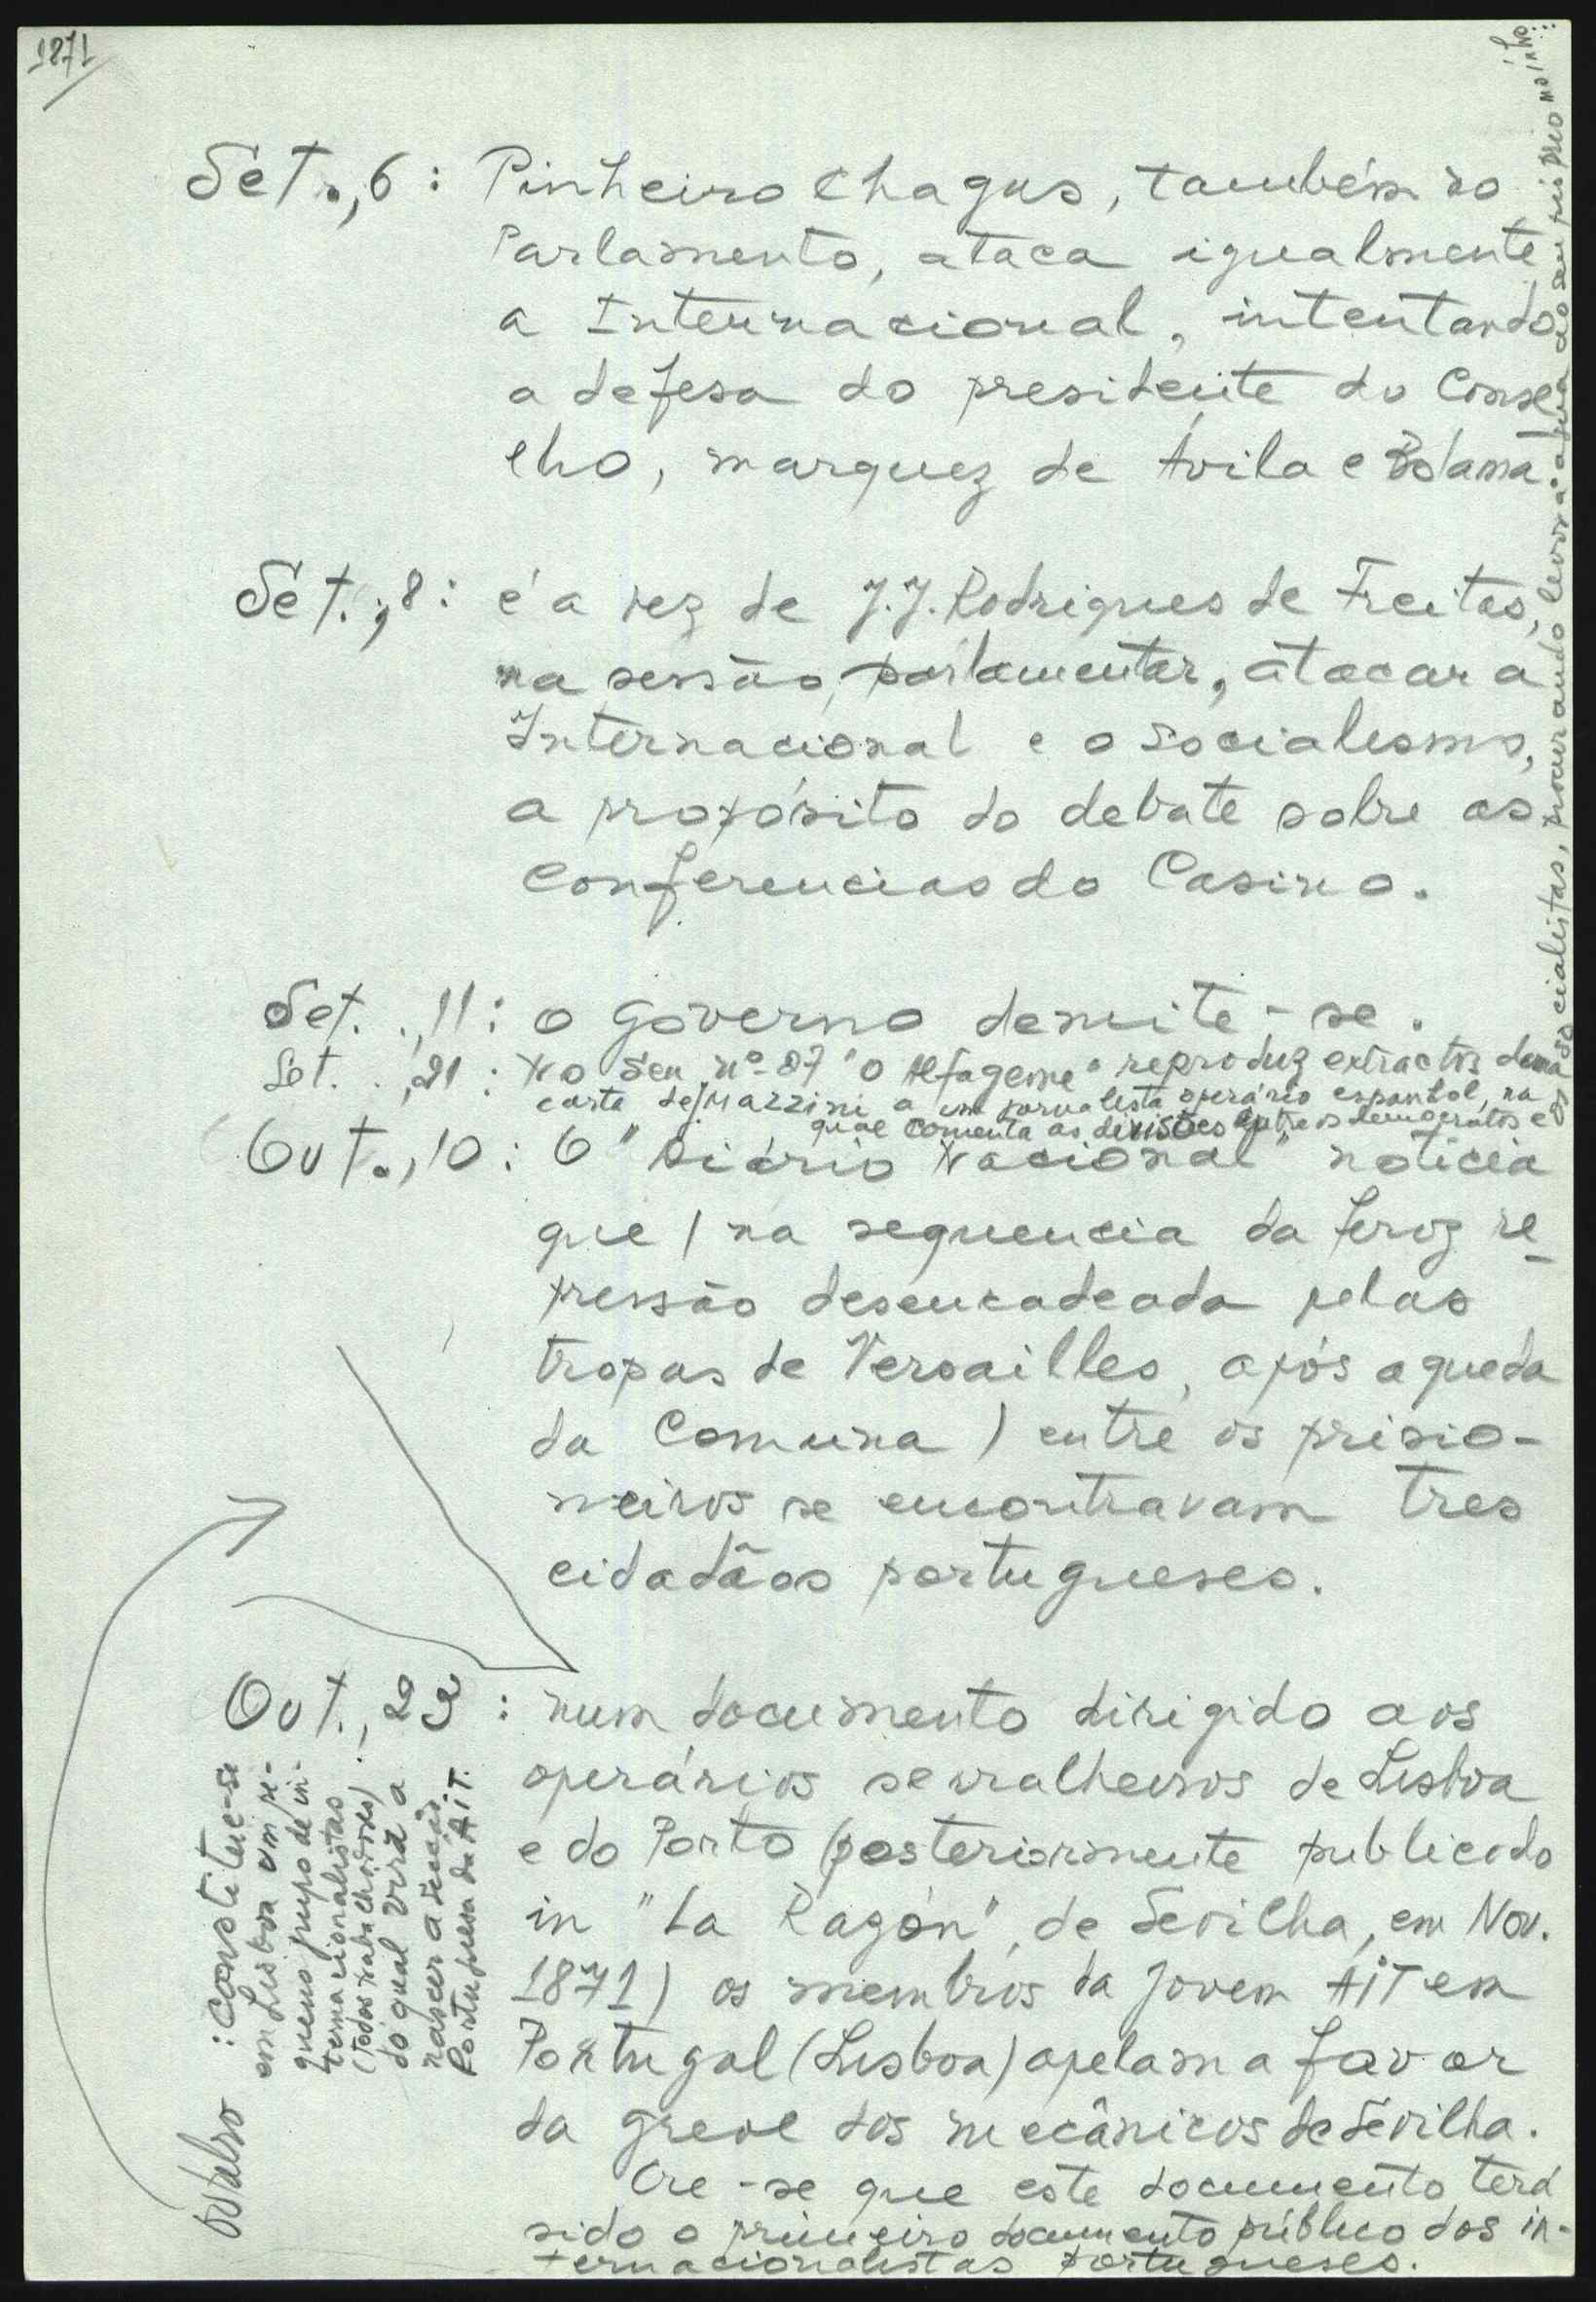 1871
Set., 6: Pinheiro Chagas, também no
Parlamento, ataca igualmente
a Internacional, intentando
a defesa do presidente do Conse
lho, marquez de Ávila e Bolama.
Set., 8: é a vez de J.J. Rodrigues de Freitas,
na sessão parlamentar, atacar a
Internacional e o socialismo,
a propósito do debate sobre as
Conferencias do Casino.
Set., 11: o governo demite-se.
Set., 21: No seu nº 87 "O Alfageme" reproduz extractos duma
carta de Mazzini a um jornalista operário espanhol, na
qual comenta as divisões entre os democratos e
os socialistas, procurando levar a água ao seu próprio moínho.
Out., 10: O "Diário Nacional" noticia
que (na sequencia da feroz re-
pressão desencadeada pelas
tropas de Versailles, após a queda
da Comuna) entre os prisio-
neiros se encontravam tres
cidadãos portugueses.
Out., 29: num documento dirigido aos
operários serralheiros de Lisboa
e do Porto (posteriormente publicado
in "La Razón", de Sevilha, em Nov.
1871) os membros da jovem AIT em
Portugal (Lisboa) apelam a favor
da greve dos mecânicos de Sevilha.
Cre-se que este documento terá
sido o primeiro documento público dos in-
ternacionalistas portugueses.
Outubro: Constitue-se
em Lisboa um pe-
queno grupo de in-
ternacionalistas
(todos trabalhadores)
do qual virá a
nascer a secção
Portuguesa da AIT.